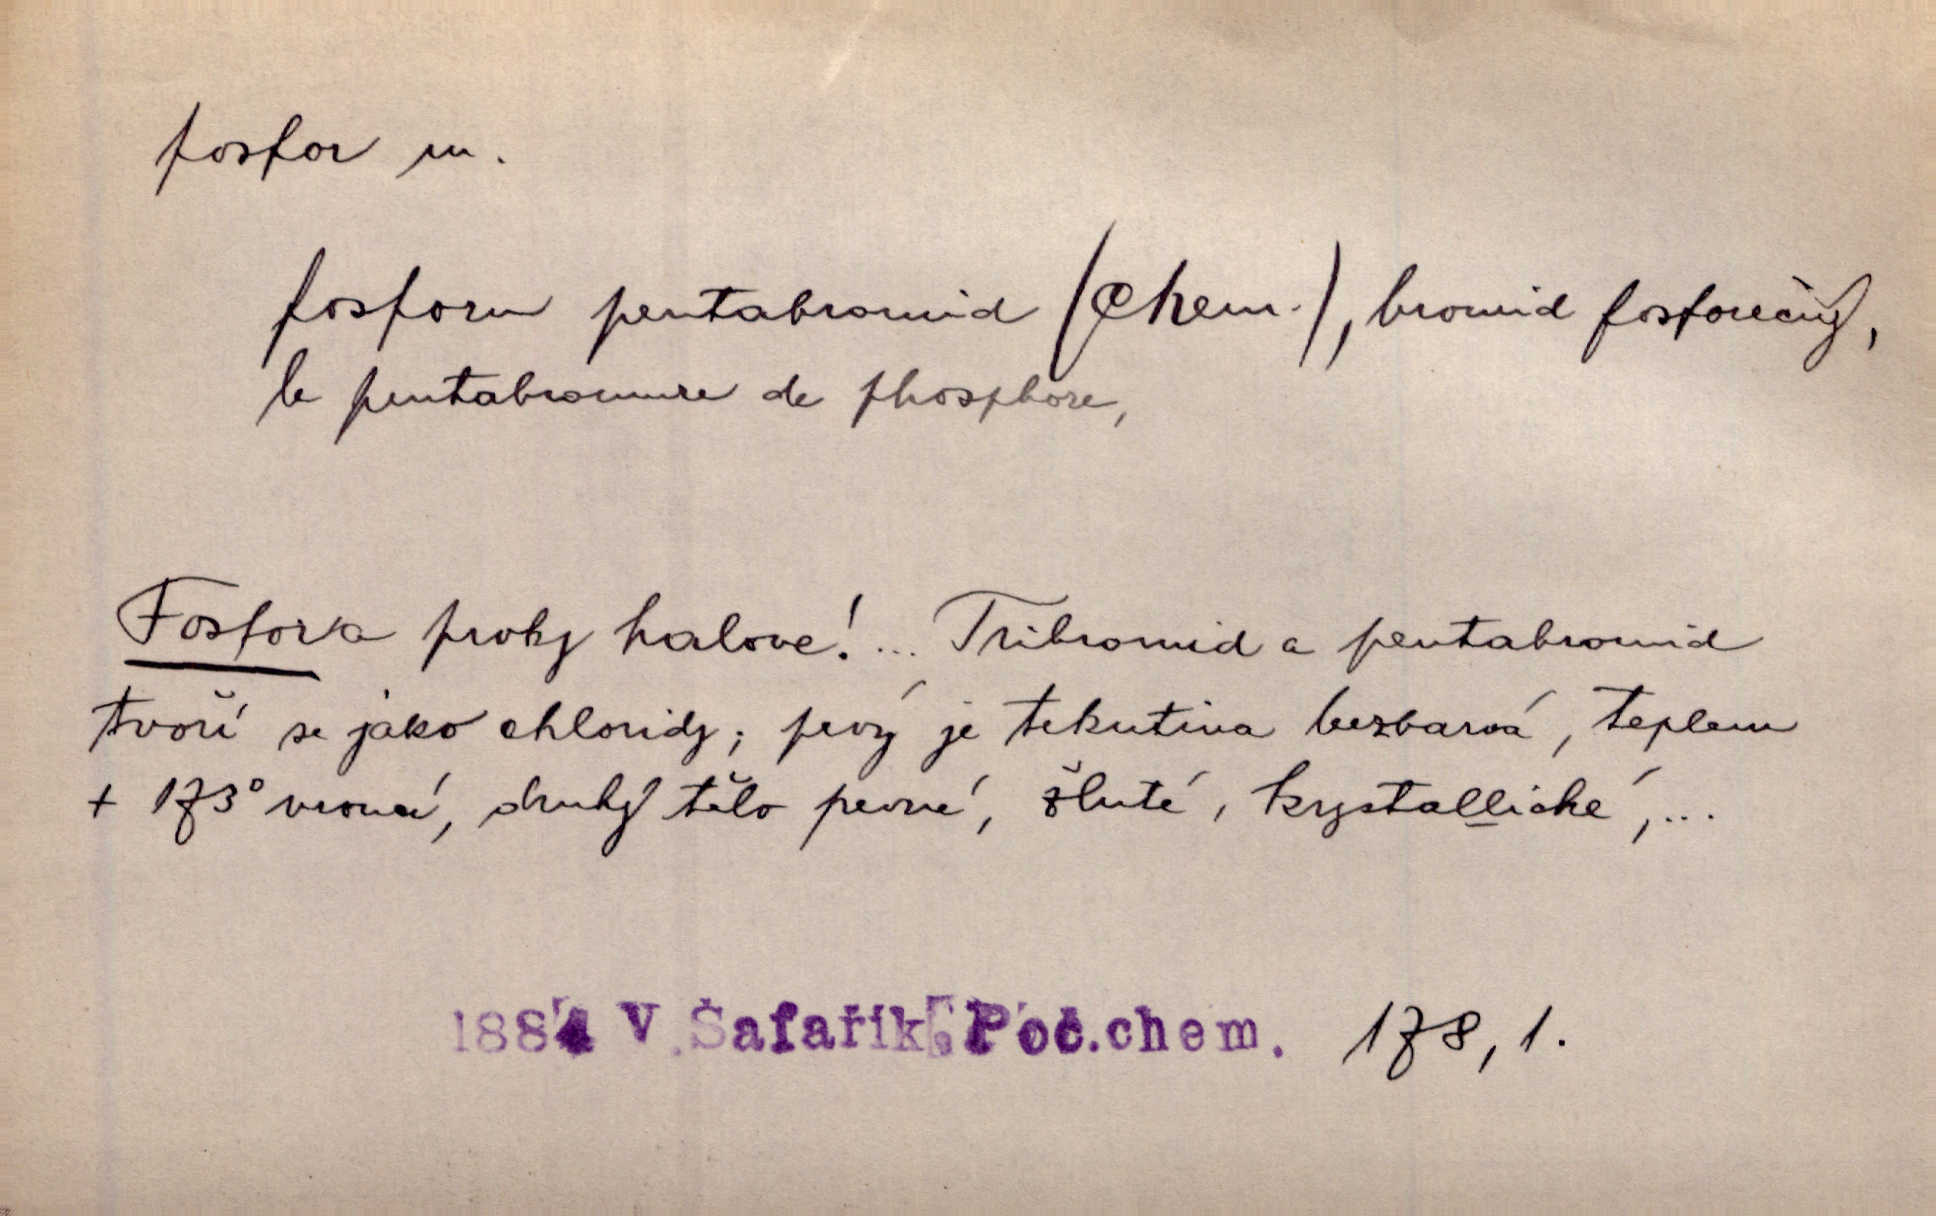 fosfor m.
fosforu pentabromid (Chem.), bromid fosforečný,
le pentabromure de phosphore,
Fosfora prvky halove! ... Tribromid a pentabromid
tvoří se jako chloridy; prvý je tekutina bezbarvá, teplem
+ 173° vroucí, druhý tělo pevné, žluté, krystallické, ...
1884 V. Šafařík. Poč.chem. 178, 1.